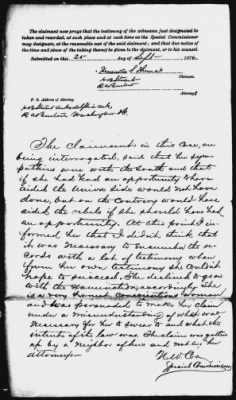 The claimant now prays that the testimony of the witnesses just designated be
taken and recorded, at such place and at such time as the Special Commissioner
may designate, at the reasonable cost of the said claimant; and that due notice of
the time and place of the taking thereof be given to the claimant, or to his counsel.
Submitted on this 20 day of Sept 187
Claimant.
Attorney
P. O. Address of Attorney,
Washington
The Claimant in this Case, on
being interrogated, said that her sym
pathies were with the South and that
if she had had an opportunity to have
aided the Union side would not have
done, but on the Contrary would have
aided the rebels if she should have had
an opportunity. At this point I in
formed her that I didn't think that
it was necessary to the re
cords with a lot of testimony when
from her own testimony she couldn't
hope to succeed. She declined to go on
with the examination accordingly. She
is a very honest, conscientious woman
and was persuaded to make her claim
under a misunderstanding of what was
necessary for her to swear to and what the
intents of the law was. The claim was gotten
up by a neighbor of hers and not by her
attorney.
Special Commissioner